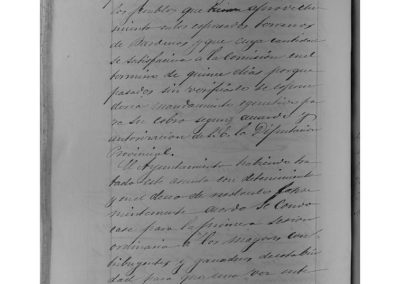 los pueblos que tienen aprovecha-
miento en los espresados terrenos
de Bardenas y que cuya cantidad
se satisfacia a la Comision en el
termino de quince dias porque
pasados sin verificarlo se espen-
dera mandamiento egecutivo pa-
ra su cobro segun acuerdo y
autorizacion de S. E. la Diputacion
Provincial.
El Ayuntamiento habiendo tra-
tado este asunto con detenimiento
y en el deseo de
acordo se convo
case para la primera sesion
ordinaria a los mayores con-
tribuyentes y ganaderos de esta Ciu-
dad para que una vez